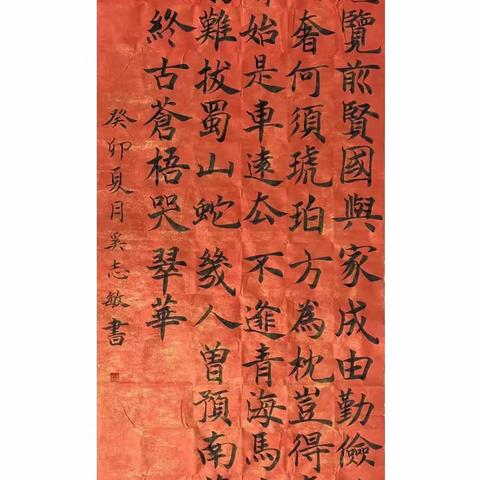 覽前賢國與家成由勤儉
奢何須琥珀方為枕豈得
始是車遠去不逢青海馬
難拔蜀山蛇幾人曾預南
終古蒼梧哭翠華
癸卯夏月吳志敏書